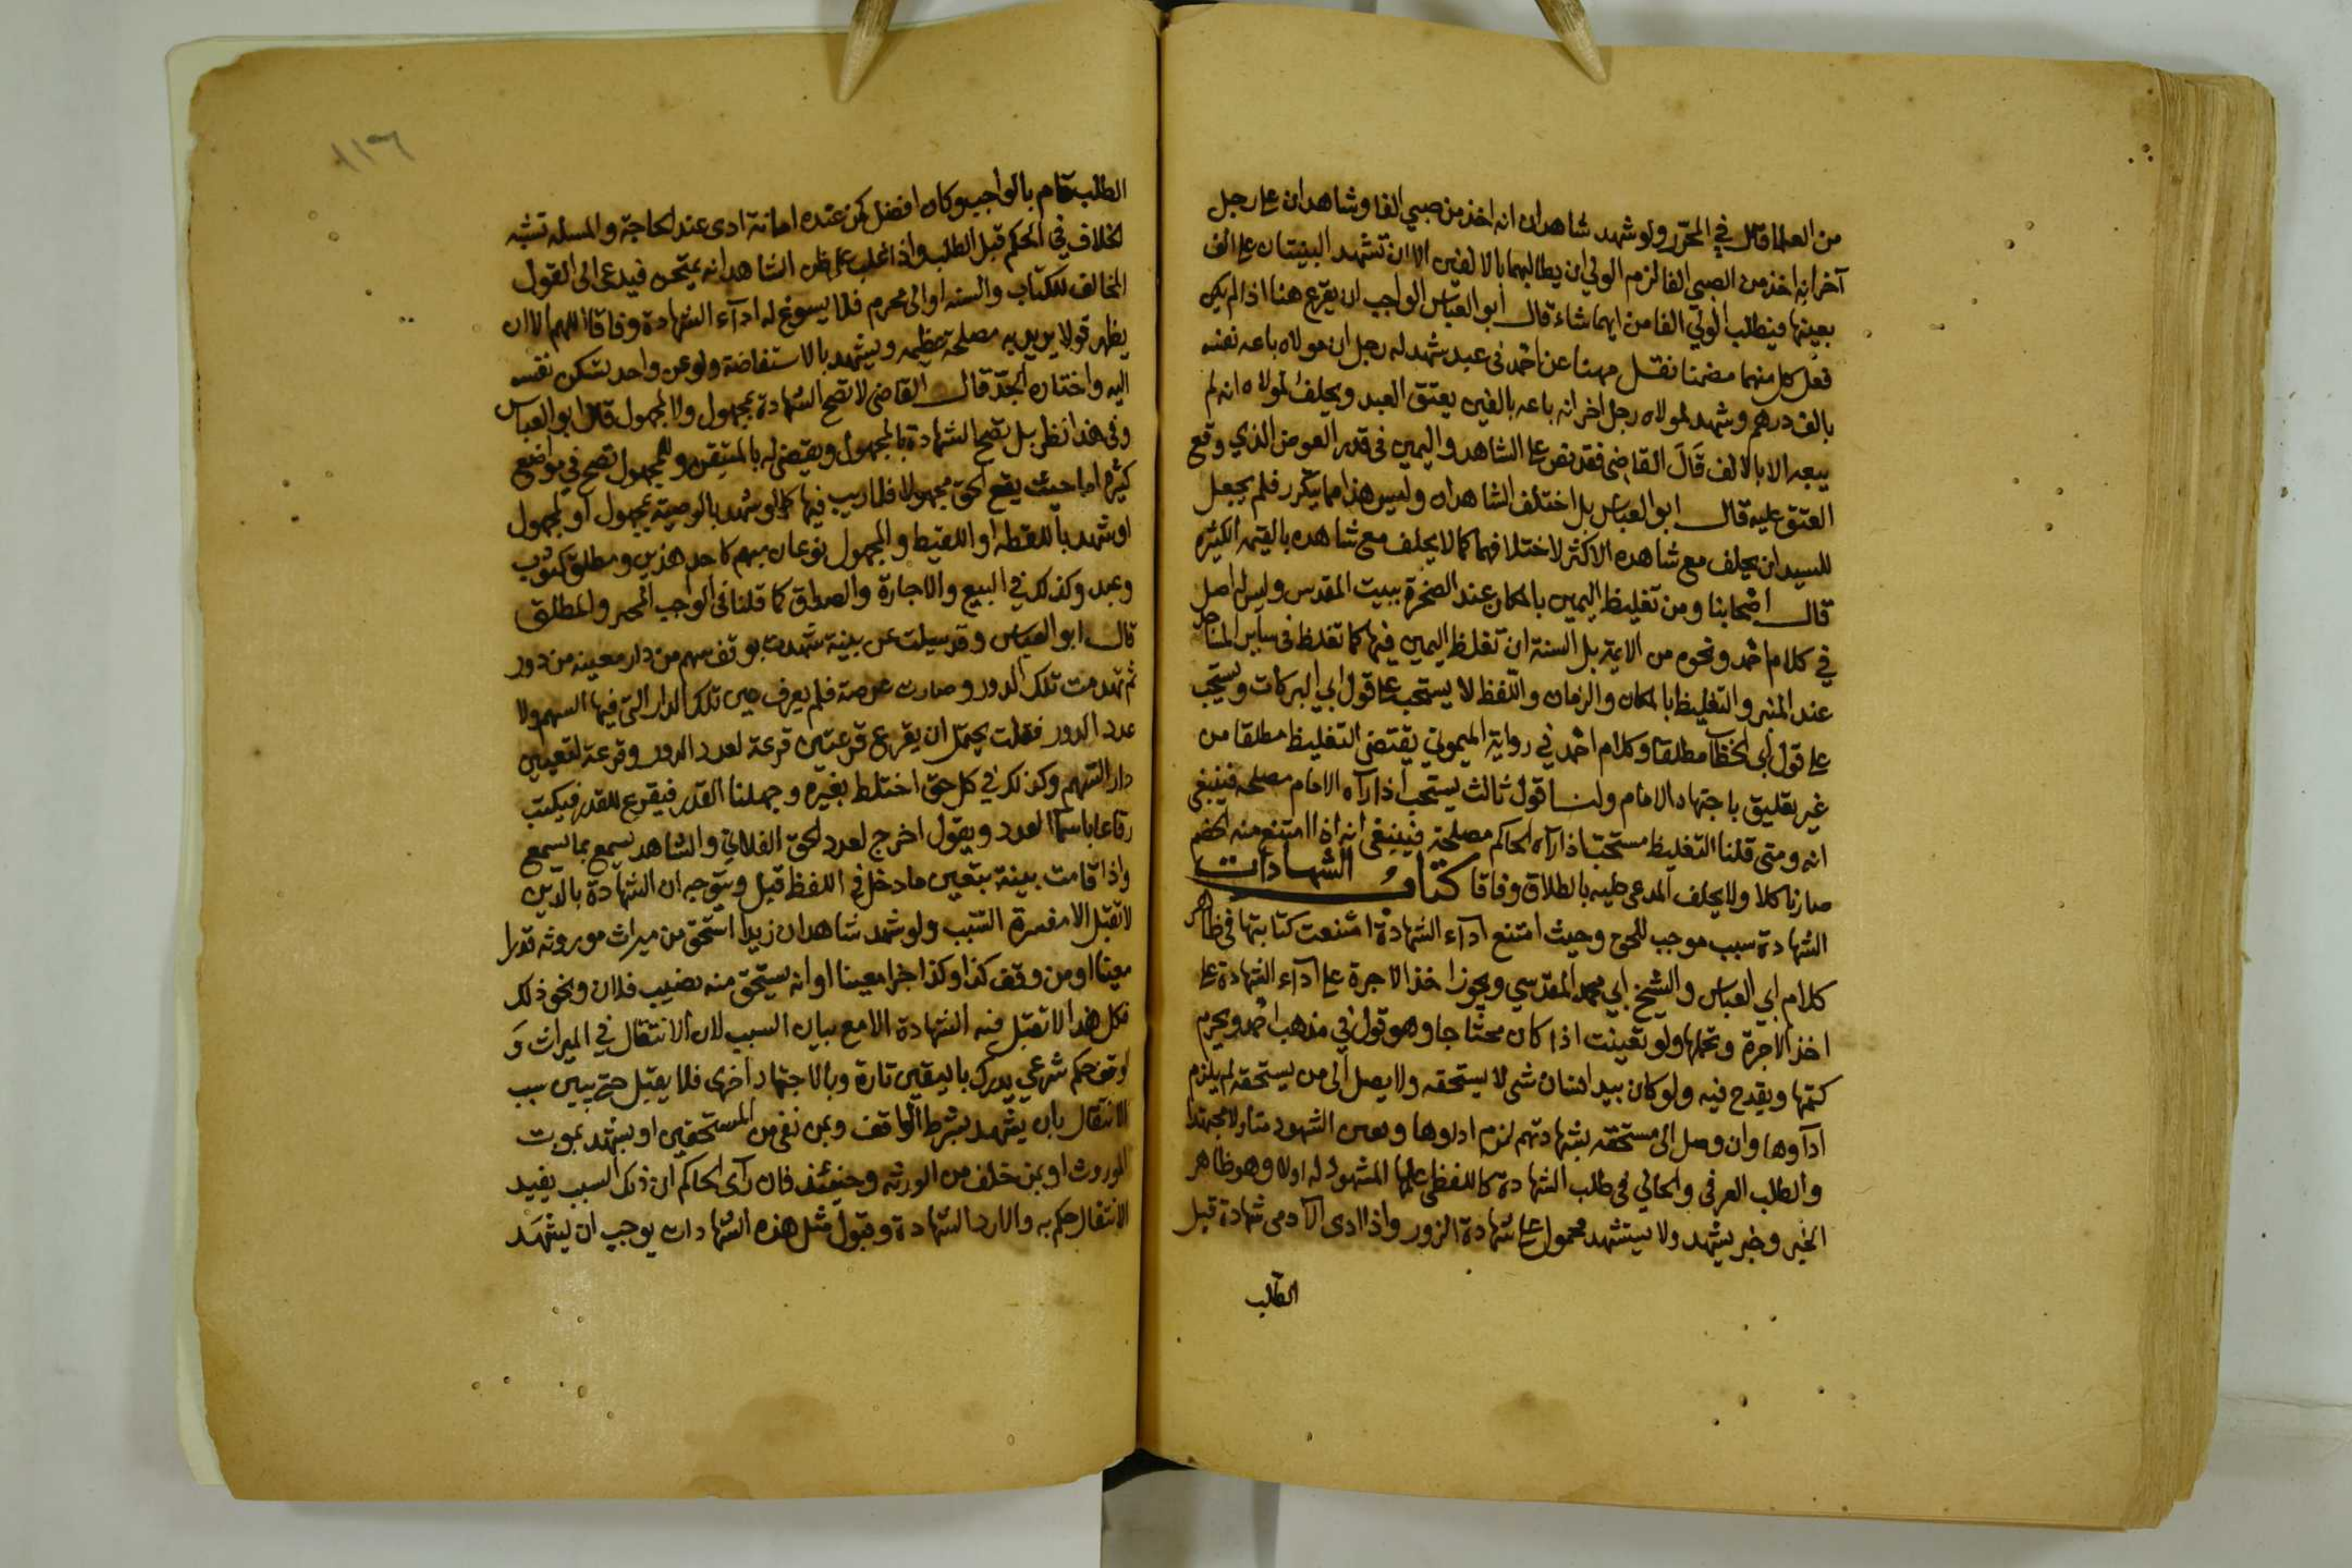 من العلما قال في المحرر ولو شهد شاهدان انه اخذ من صبي الفا وشاهدان على رجل
آخر انه اخذ من الصبي الفا لزم الولي ان يطالبهما بالالفين الا ان تشهد البينتان على الف
بعينها فيطلب الولي الفا من ايهما شاء قال ابو العباس الواجب ان يقرع هنا اذا لم يكن
فعل كل منهما مضمنا نقل مهنا عن احمد في عبد شهد له رجل ان مولاه باعه نفسه
بالف درهم وشهد لمولاه رجل اخر انه باعه بالفين يعتق العبد ويحلف لمولاه انه لم
يبعه الا بالالف قال القاضي فقد نص على الشاهد واليمين في قدر العوض الذي وقع
العتق عليه قال ابو العباس بل اختلف الشاهدان وليس هذا مما يتكرر فلم يجعل
للسيد ان يحلف مع شاهده الاكثر لاختلافهما كما لا يحلف مع شاهده بالقيمه الكثيره
قال اصحابنا ومن تغليظ اليمين بالمكان عند الصخرة ببيت المقدس وليس له اصل
في كلام احمد ونحوه من الايمة بل السنة ان تغلظ اليمين فيها كما تغلظ في ساير المساجد
عند المنبر والتغليظ بالمكان والزمان واللفظ لا يستحب على قول ابي البركات ويستحب
على قول ابي الخطاب مطلقا وكلام احمد في رواية الميموني يقتضي التغليظ مطلقا من
غير تعليق باجتهاد الامام ولنا قول ثالث يستحب اذا رآه الامام مصلحه فينبغي
انه ومتى قلنا التغليظ مستحب اذا رآه الحاكم مصلحة فينبغي انه اذا امتنع منه الخصم
صار ناكلا ولا يحلف المدعى عليه بالطلاق وفاقا كتاب الشهادات
الشهادة سبب موجب للحق وحيث امتنع اداء الشهادة امتنعت كتابتها في ظاهر
كلام ابي العباس والشيخ ابي محمد المقدسي ويجوز اخذ الاجرة على اداء الشهادة على
اخذ الاجرة وتحملها ولو تعينت اذا كان محتاجا وهو قول في مذهب احمد ويحرم
كتمها ويقدح فيه ولو كان بيد انسان شي لا يستحقه ولا يصل الى من يستحقه لم يلزم
اداوها وان وصل الى مستحقه بشهادتهم لزم ادوها وتعين الشهود متاولا مجتهدا
والطلب العرفي والحالي في طلب الشهادة كاللفظي عليها المشهود له اولا وهو ظاهر
الخبر وخبر يشهد ولا يستشهد محمول على شهادة الزور واذا ادى الآدمي شهادة قبل
الطلب
١١٦
الطلب قام بالواجب وكان افضل كمن عنده امانة ادى عند الحاجة والمسله تشبه
الخلاف في الحكم قبل الطلب واذا غلب على ظن الشاهد انه يمتحن فيدعى الى القول
المخالف للكتاب والسنه او الى محرم فلا يسوغ له اداء الشهادة وفاقا اللهم الا ان
يظهر قولا يريد به مصلحة عظيمه ويشهد بالاستفاضة ولو عن واحد تسكن نفسه
اليه واختاره الجد قال القاضي لا تصح الشهادة بمجهول ولا لمجهول قال ابو العباس
وفي هذا نظر بل تصح الشهادة بالمجهول ويقضى له بالمتيقن وللمجهول تصح في مواضع
كثيرة اما حيث يقع الحق مجهولا فلا ريب فيها كما لو شهد بالوصية بمجهول او لمجهول
او شهد باللقطه او اللقيط والمجهول نوعان مبهم كاحد هذين ومطلق كثوب
وعبد وكذلك في البيع والاجارة والصداق كما قلنا في الواجب المخير والمطلق
قال ابو العباس وقد سيلت عن بينة شهدت بوقف سهم من دار معينه من دور
ثم تهدمت تلك الدور وصارت عرصة فلم يعرف عين تلك الدار التي فيها السهم ولا
عدد الدور فقلت يحتمل ان يقرع قرعتين قرعة لعدد الدور وقرعة لتعيين
دار السهم وكذلك في كل حق اختلط بغيره وجهلنا القدر فيقرع للقدر فيكتب
رقاعا باسما العدد ويقول اخرج لعدد الحق الفلاني والشاهد يسمع بما يسمع
واذا قامت بينة بتعيين ما دخل في اللفظ قبل ويتوجه ان الشهادة بالدين
لا تقبل الا مفسرة السبب ولو شهد شاهدان زيدا استحق من ميراث موروثه قدرا
معينا او من وقف كذا وكذا جزا معينا او انه يستحق منه نصيب فلان ونحو ذلك
فكل هذا لا تقبل فيه الشهادة الا مع بيان السبب لان الانتقال في الميراث و
لوقف حكم شرعي يدرك باليقين تارة وبالاجتهاد اخرى فلا يقبل حتى يبين سبب
الانتقال بان يشهد بشرط الواقف وبمن نفى من المستحقين او يشهد بموت
الموروث او بمن خلف من الورثه وحينئذ فان رآى الحاكم ان ذلك السبب يفيد
الانتقال حكم به والا رد الشهادة وقبول مثل هذه الشهادات يوجب ان يشهد